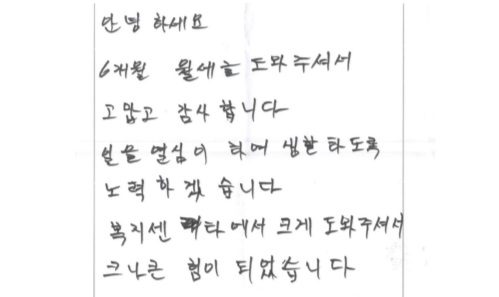 안녕 하세요
6개월 월세를 도와주셔서
고맙고 감사 합니다
일을 열심히 하여 생활 하도록
노력 하겠 습니다
복지센 타에서 크게 도와주셔서
크나큰 힘이 되었습니다